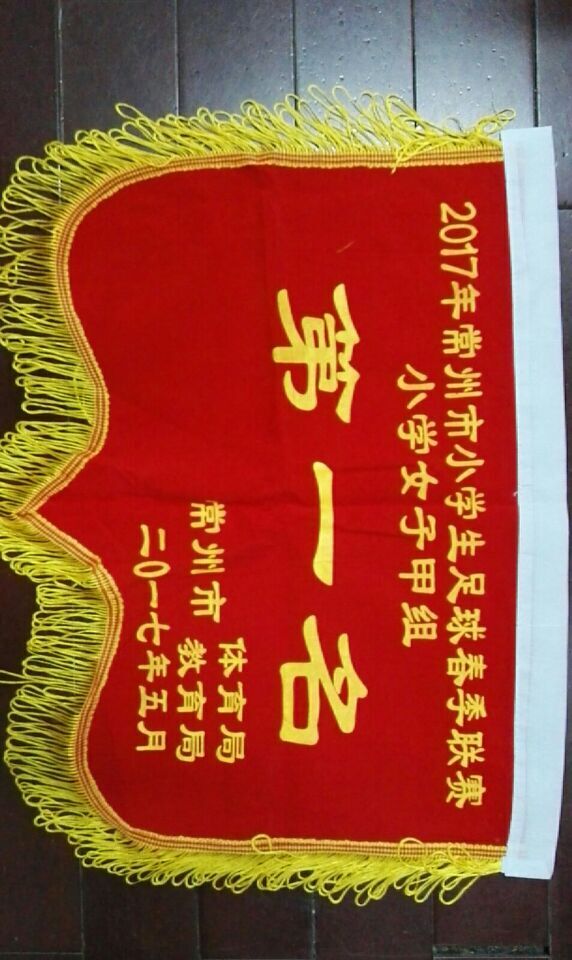 2017年常州市小学生足球春季联赛
小学女子甲组
第一名
体育局
常州市
教育局
二〇一七年五月